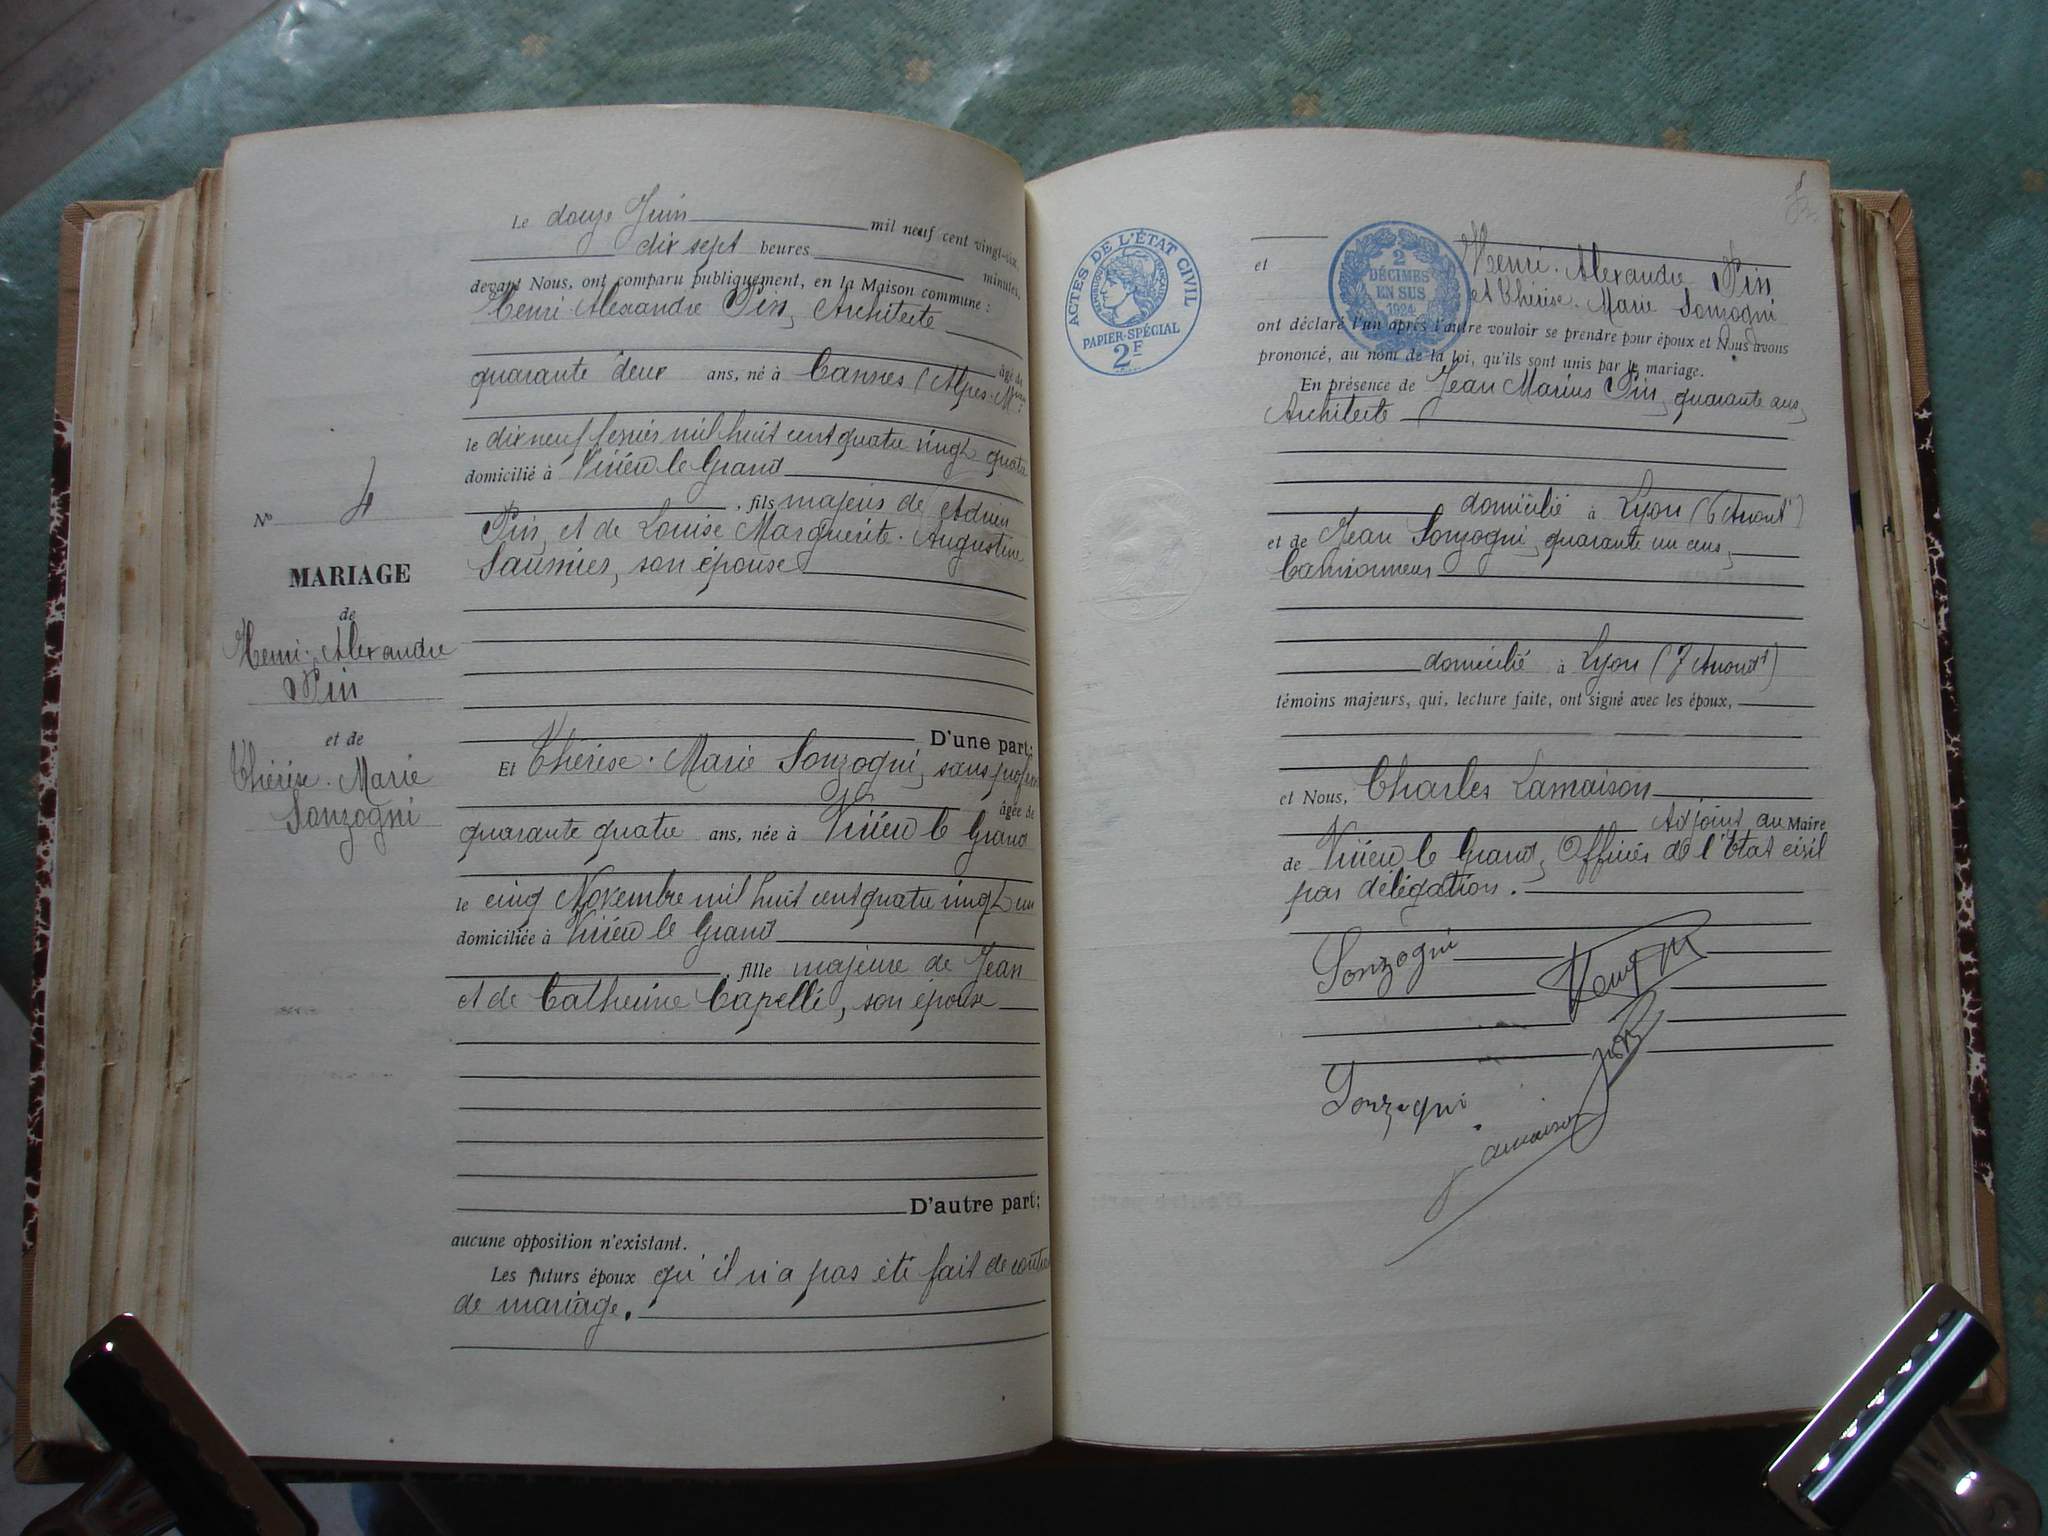 Le douze Juin mil neuf cent vingt-six,
dix sept heures minutes,
devant Nous, ont comparu publiquement, en la Maison commune :
Henri Alexandre Pin, Architecte
âgé de
quarante deux ans, né à Cannes (Alpes-Mmes
le dix neuf février mil huit cent quatre vingt quatre
domicilié à Virieu le Grand
, fils majeur de Adrien
Pin, et de Louise Marguerite Augustine
Saumier, son épouse
D'une part;
Et Thérèse Marie Sonzogni, sans profession
âgée de
quarante quatre ans, née à Virieu le Grand
le cinq Novembre mil huit cent quatre vingt un
domiciliée à Virieu le Grand
, fille majeure de Jean
et de Catherine Capelli, son épouse
D'autre part;
aucune opposition n'existant.
Les futurs époux qu'il n'a pas été fait de contrat
de mariage.
No 4
MARIAGE
de
Henri Alexandre
Pin
et de
Thérèse Marie
Sonzogni
ACTES DE L'ÉTAT CIVIL
RÉPUBLIQUE FRANÇAISE
PAPIER-SPÉCIAL
2F
2
DÉCIMES
EN SUS
1924
Henri Alexandre Pin
et
et Thérèse Marie Sonzogni
ont déclaré l'un après l'autre vouloir se prendre pour époux et Nous avons
prononcé, au nom de la loi, qu'ils sont unis par le mariage.
En présence de Jean Marius Pin, quarante ans,
Architecte
domicilié à Lyon (6 Arrondt)
et de Jean Sonzogni, quarante un ans,
Camionneur
domicilié à Lyon (7 Arrondt)
témoins majeurs, qui, lecture faite, ont signé avec les époux,
et Nous, Charles Lamaison
Adjoint au Maire
de Virieu le Grand, Officier de l'Etat civil
par délégation.
Sonzogni
Sonzogni
Lamaison